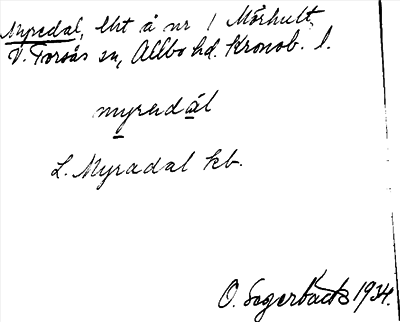 Myredal, lht å nr 1 Mörhult,
V. Torsås sn, Allbo hd. Kronob. l.
myredál
L. Myradal kb.
O. Segerbäck 1934.